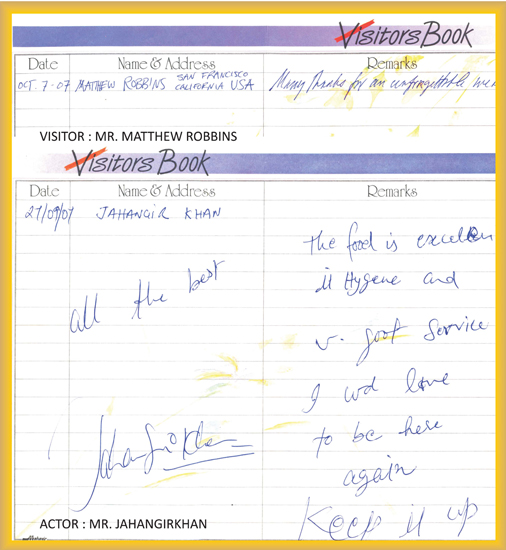 Visitors Book
Date Name & Address Remarks
OCT. 7-07 MATTHEW ROBBINS SAN FRANCISCO CALIFORNIA USA Many Thanks for an unforgettable
VISITOR : MR. MATTHEW ROBBINS
Visitors Book
Date Name & Address Remarks
27/09/07 JAHANGIR KHAN
The food is excellen
Hygene and
all the best
v. good Service
I wd love
to be here
again
Jahangir Khan
Keep it up
ACTOR : MR. JAHANGIRKHAN